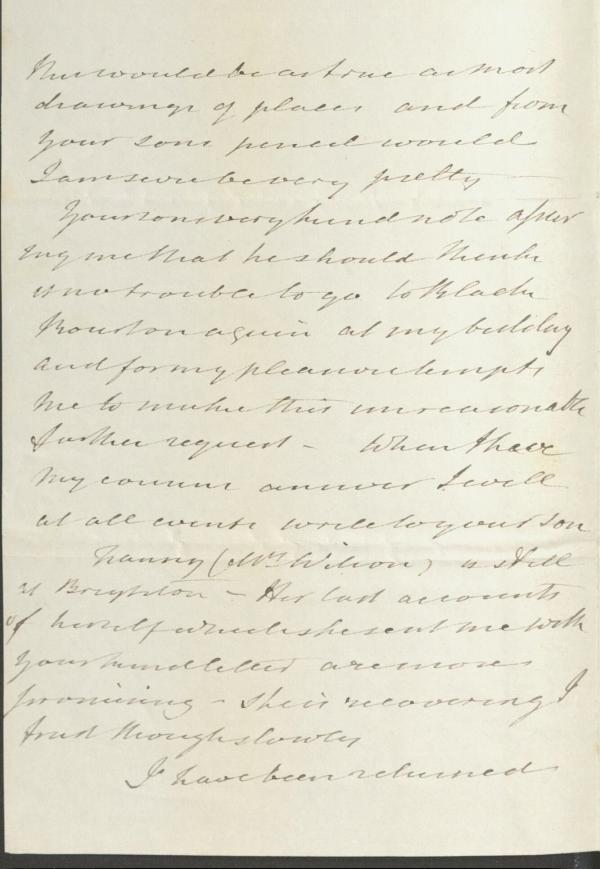 this would be as true as most
drawings of places and from
your sons pencil would
I am sure be very pretty
Your sons very kind note assur
ing me that he should think
it no trouble to go to Black
Bourton again at my bidding
and for my pleasure tempts
me to make this unreasonable
further request – When I have
my cousins answer I will
at all events write to your son
Fanny (Mrs Wilson) is still
at Brighton – Her last accounts
of herself which she sent me with
your kind letter are more
promising – She is recovering I
trust though slowly
I have been returned